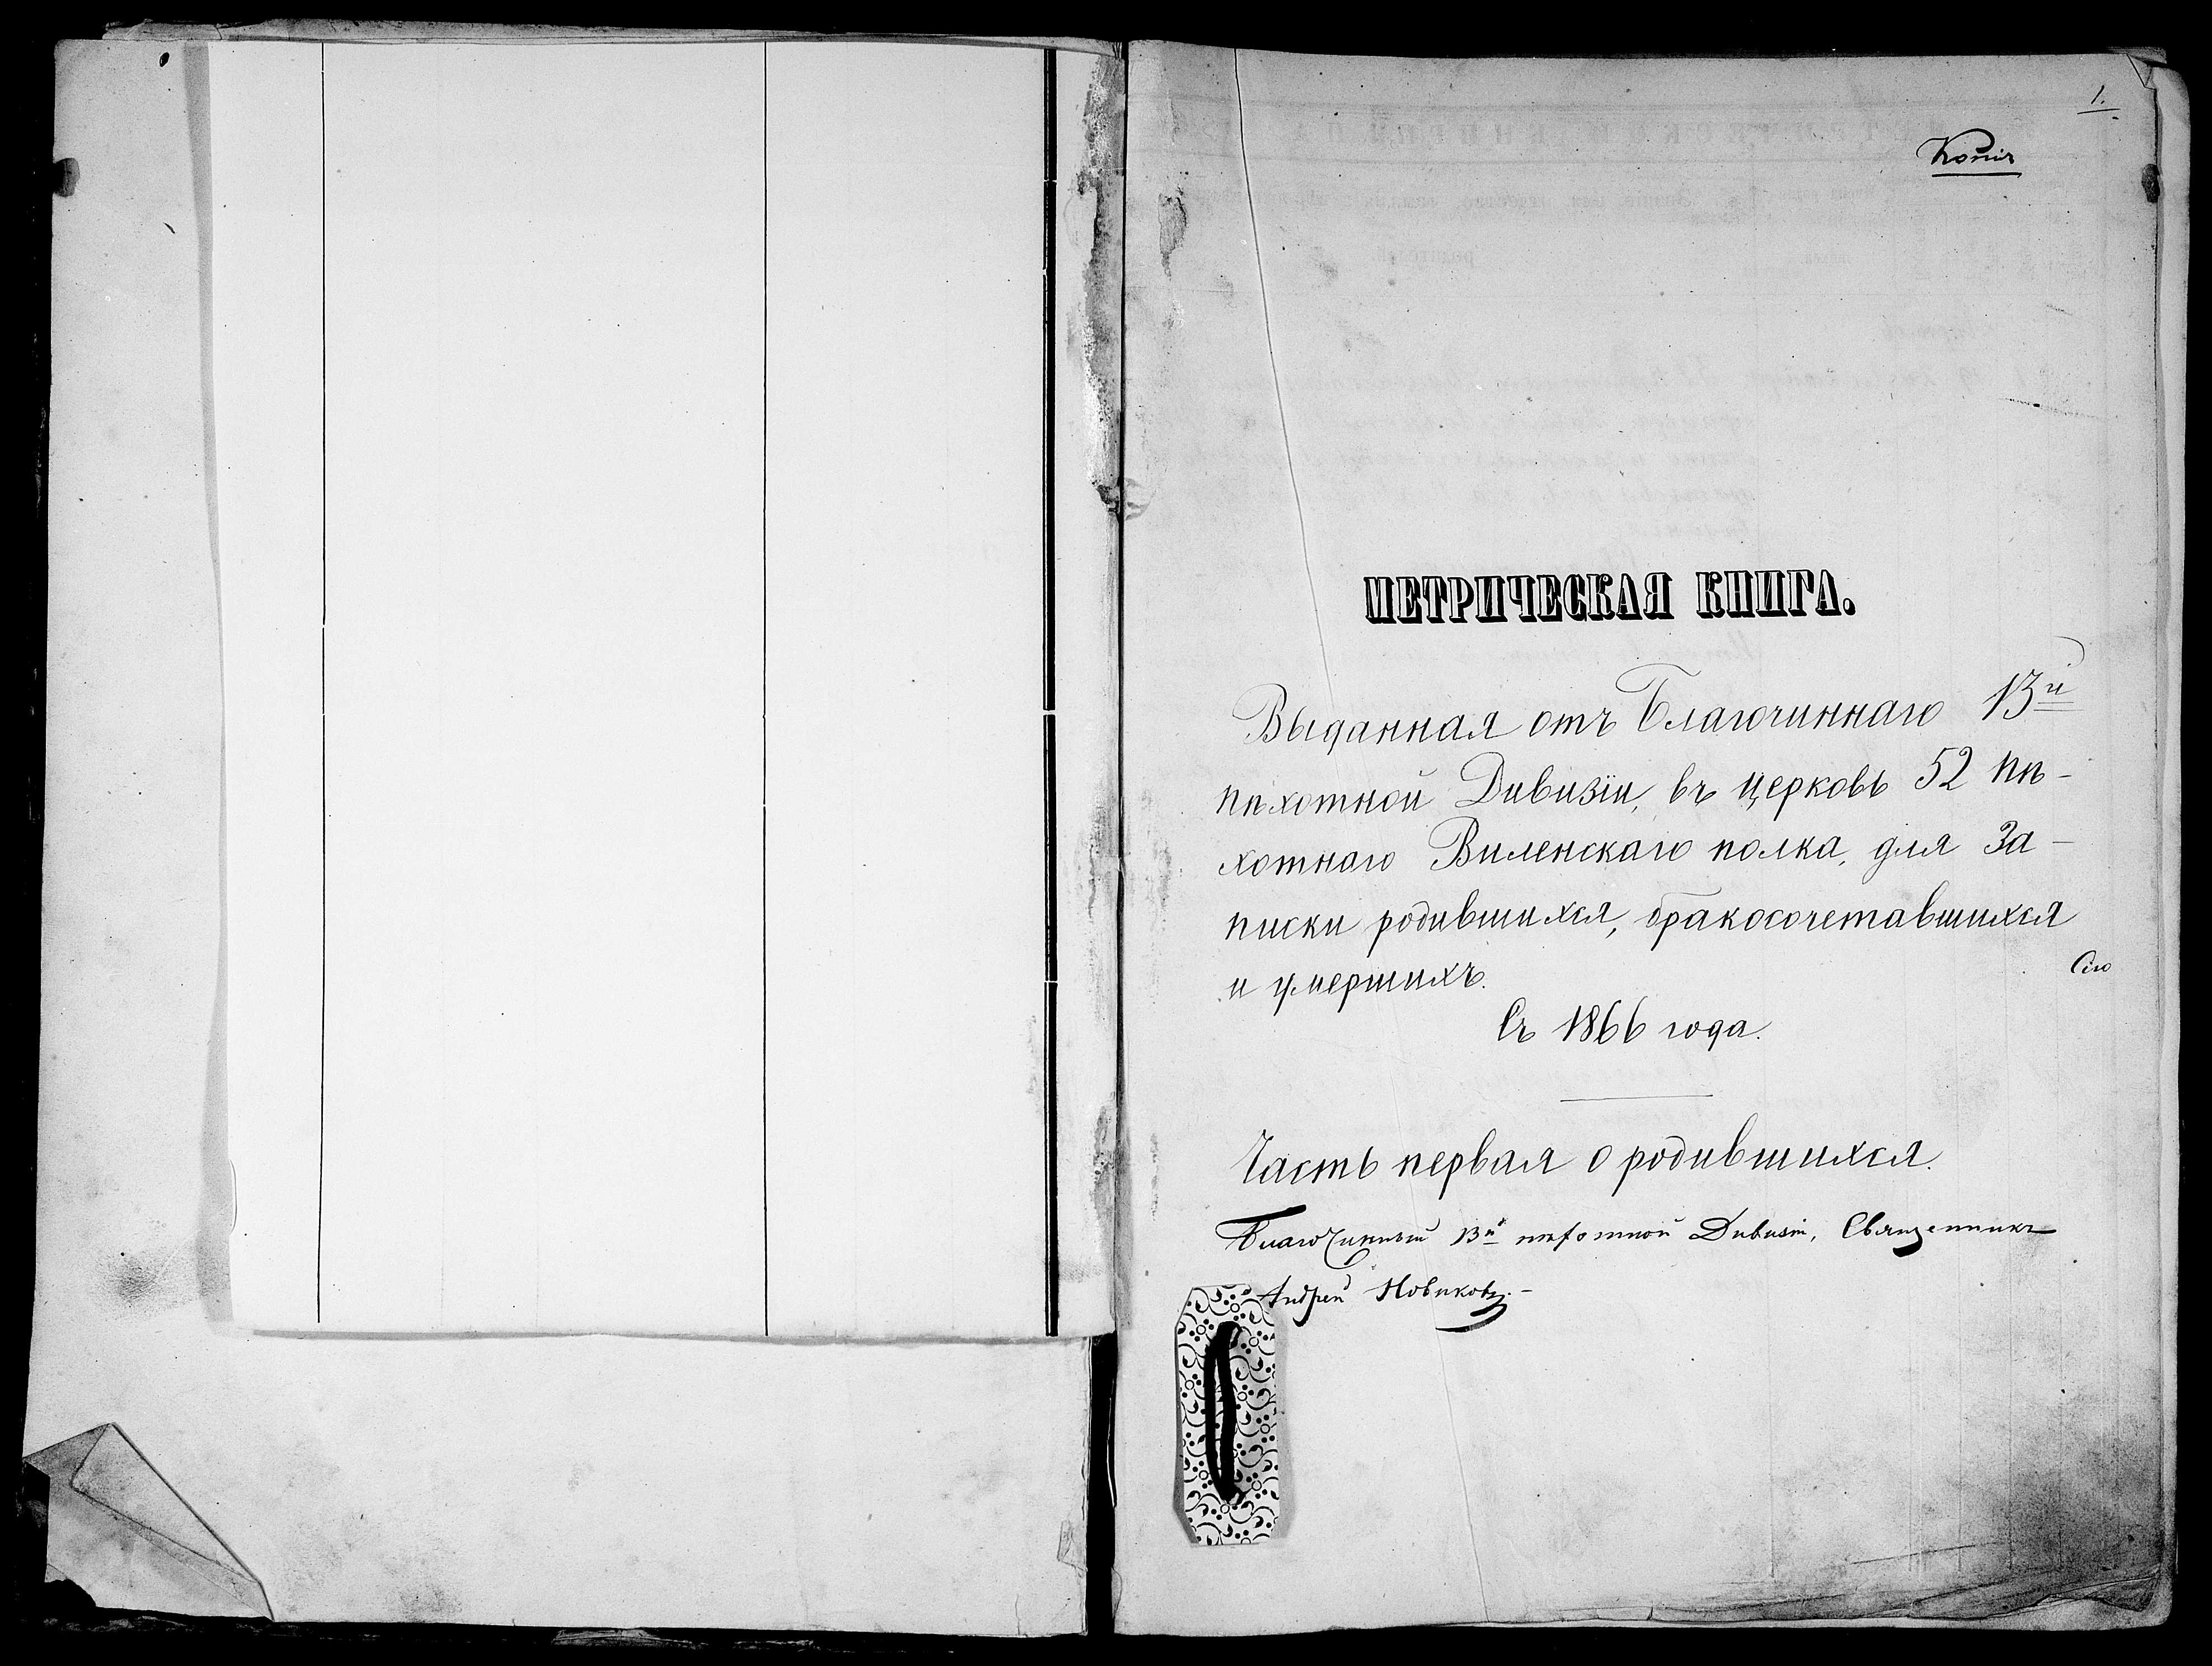 1.
Копія
МЕТРИЧЕСКАЯ КНИГА.
Выданная отъ Благочиннаго 13й
пѣхотной Дивизіи, въ церковь 52 пѣ-
хотнаго Виленскаго полка, для за-
писки родившихся, бракосочетавшихся
и умершихъ.
Сію
Съ 1866 года.
Часть первая о родившихся.
Благочинный 13й пѣхотной Дивизіи, Священникъ
Андрей Новиковъ.-